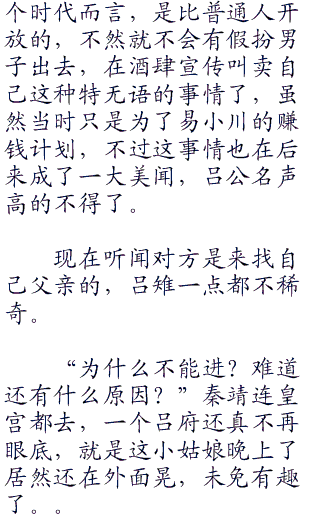 个时代而言，是比普通人开
放的，不然就不会有假扮男
子出去，在酒肆宣传叫卖自
己这种特无语的事情了，虽
然当时只是为了易小川的赚
钱计划，不过这事情也在后
来成了一大美闻，吕公名声
高的不得了。
现在听闻对方是来找自
己父亲的，吕雉一点都不稀
奇。
“为什么不能进？难道
还有什么原因？”秦靖连皇
宫都去，一个吕府还真不再
眼底，就是这小姑娘晚上了
居然还在外面晃，未免有趣
了。。